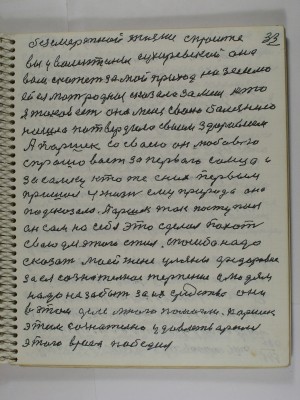 33
безсмертной жизни спросите
вы у валентины сухаревской она
вам скажет за мой приход на землю
ей ея мать родная сказала за меня кто
я таков есть она меня своно болезнено
нашла потвердила своим здоровием
А паршек со своего он любовью
спрашивает за первого солнца и
за самих кто же с них первым
пришол у жизнь ему природа она
подсказала. Паршек так поступил
он сам на себя это сделал
свою для этого стал. спасибо надо
сказать моей жене ульяны федоровне
за ея сознательное терпение и людям
надо не забыть за их средство они
в этом деле много помогли. Паршек
этим сознательно удовлетварили
этого время победил